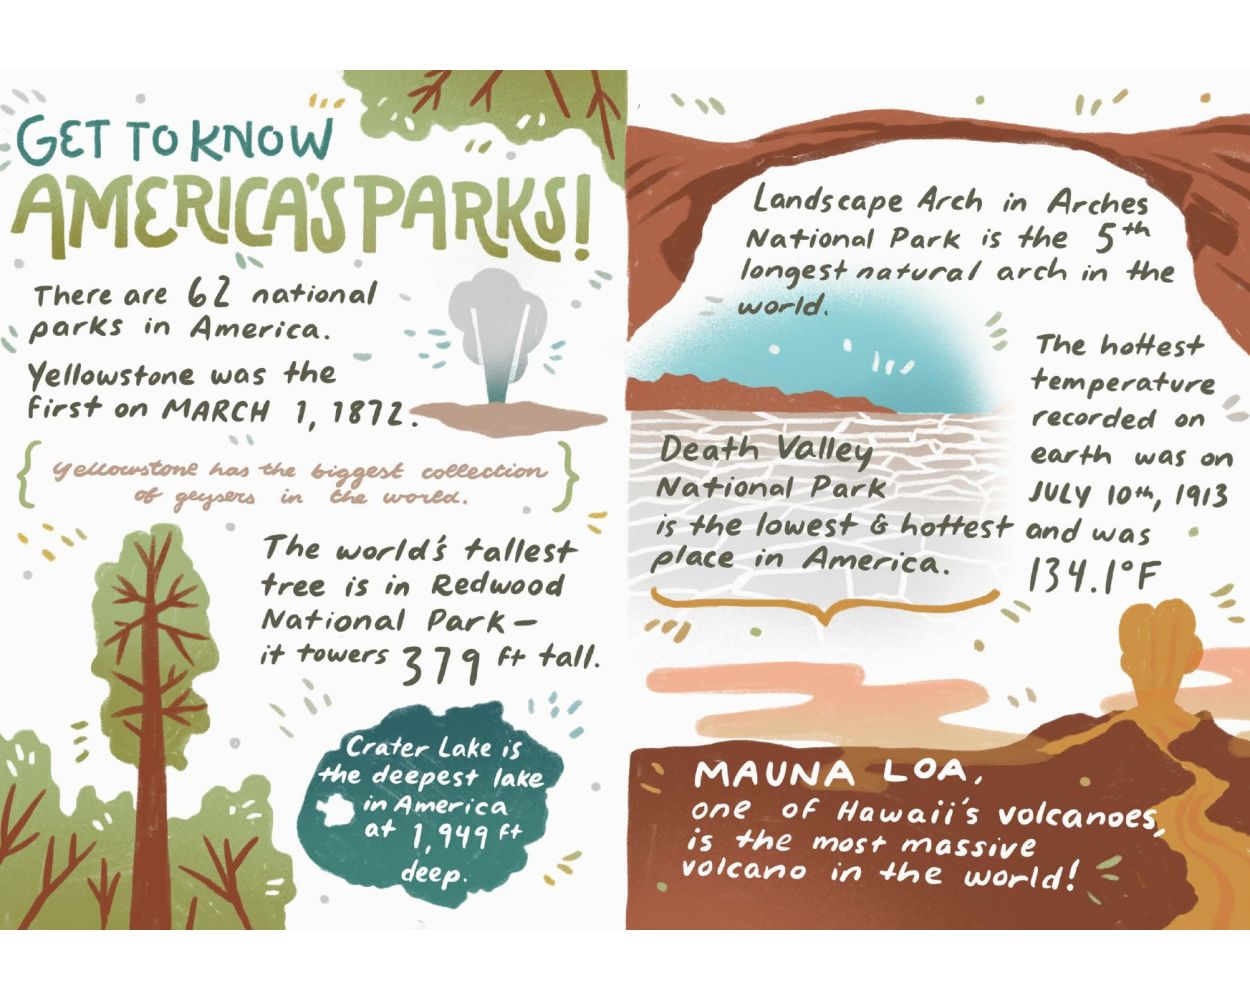 GET TO KNOW
AMERICA'S PARKS!
There are 62 national
parks in America.
Yellowstone was the
first on MARCH 1, 1872.
Yellowstone has the biggest collection
of geysers in the world.
The world's tallest
tree is in Redwood
National Park—
it towers 379 ft tall.
Crater Lake is
the deepest lake
in America
at 1,949 ft
deep.
Landscape Arch in Arches
National Park is the 5th
longest natural arch in the
world.
Death Valley
National Park
is the lowest & hottest
place in America.
The hottest
temperature
recorded on
earth was on
JULY 10th, 1913
and was
134.1°F
MAUNA LOA,
one of Hawaii's volcanoes,
is the most massive
volcano in the world!